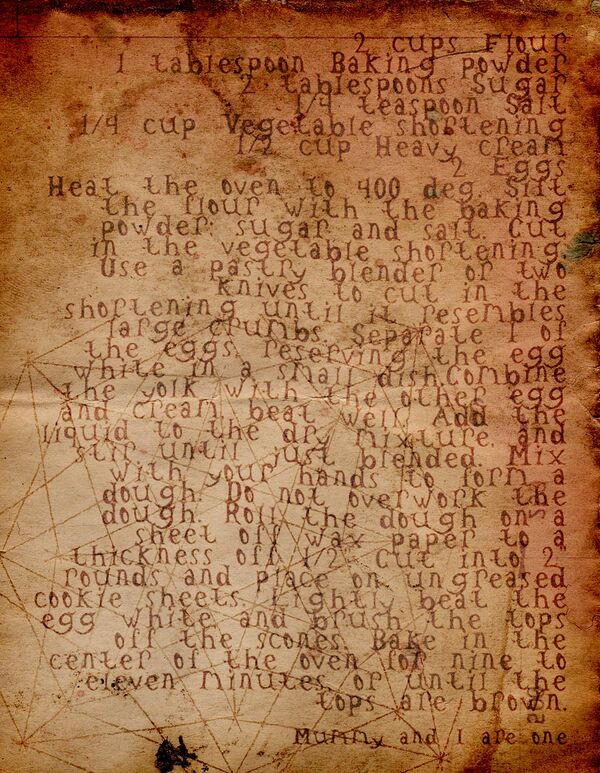 2 cups Flour
1 tablespoon Baking powder
2 tablespoons Sugar
1/4 teaspoon Salt
1/4 cup Vegetable shortening
1/2 cup Heavy cream
2 Eggs
Heat the oven to 400 deg. Sift
the flour with the baking
powder, sugar and salt. Cut
in the vegetable shortening.
Use a pastry blender or two
knives to cut in the
shortening until it resembles
large crumbs. Separate 1 of
the eggs, reserving the egg
white in a small dish.Combine
the yolk with the other egg
and cream, beat well. Add the
liquid to the dry mixture, and
stir until just blended. Mix
with your hands to form a
dough. Do not overwork the
dough. Roll the dough on a
sheet off wax paper to a
thickness off 1/2. Cut into 2,
rounds and place on ungreased
cookie sheets. Lightly beat the
egg white and brush the tops
off the scones. Bake in the
center of the oven for nine to
eleven minutes or until the
tops are brown.
Mummy and I are one